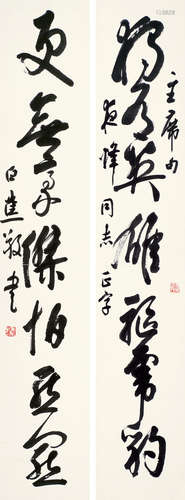 主席句
獨有英雄驅虎豹
同志正字
更無豪傑怕熊羆
白蕉敬書